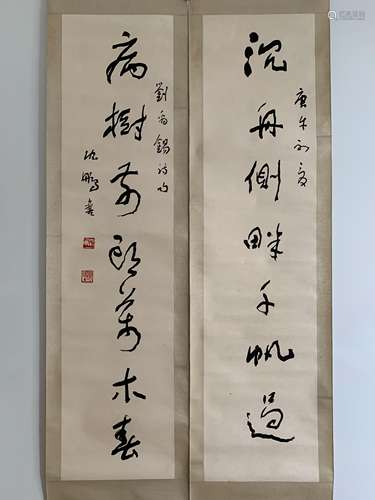 沉舟側畔千帆過
庚午初夏
病樹前頭萬木春
劉禹錫詩句
沈鵬書